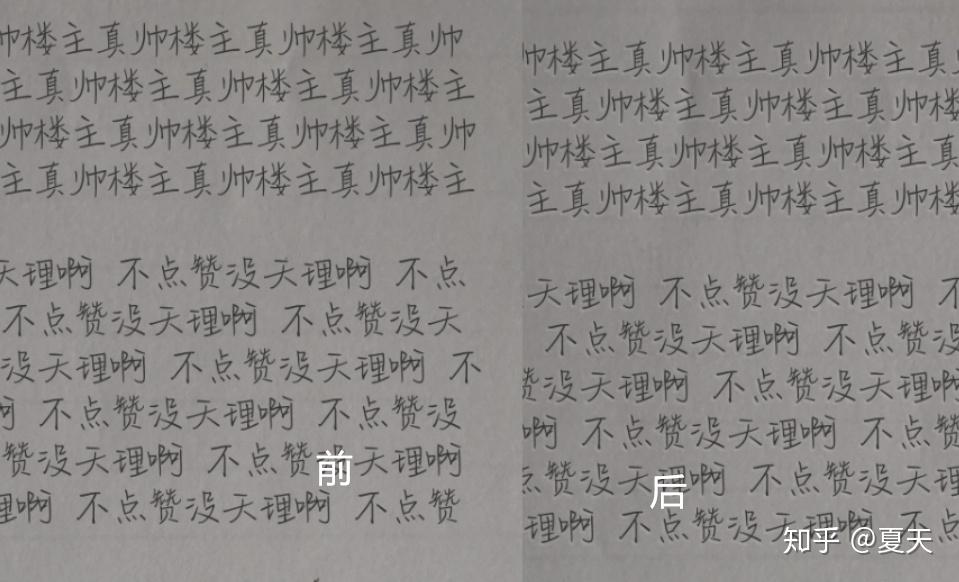 帅楼主真帅楼主真帅楼主真帅
主真帅楼主真帅楼主真帅楼主
帅楼主真帅楼主真帅楼主真帅
主真帅楼主真帅楼主真帅楼主
天理啊 不点赞没天理啊 不点
不点赞没天理啊 不点赞没天
没天理啊 不点赞没天理啊 不
啊 不点赞没天理啊 不点赞没
赞没天理啊 不点赞 天理啊
前
理啊 不点赞没天理啊 不点赞
帅楼主真帅楼主真帅楼主真
主真帅楼主真帅楼主真帅楼
帅楼主真帅楼主真帅楼主真
主真帅楼主真帅楼主真帅楼
天理啊 不点赞没天理啊 不
不点赞没天理啊 不点赞没
赞没天理啊 不点赞没天理啊
啊 不点赞没天理啊 不点赞
点赞没天理啊 不点赞没天理
后
理啊 不点赞没天理啊 不点
知乎 @夏天